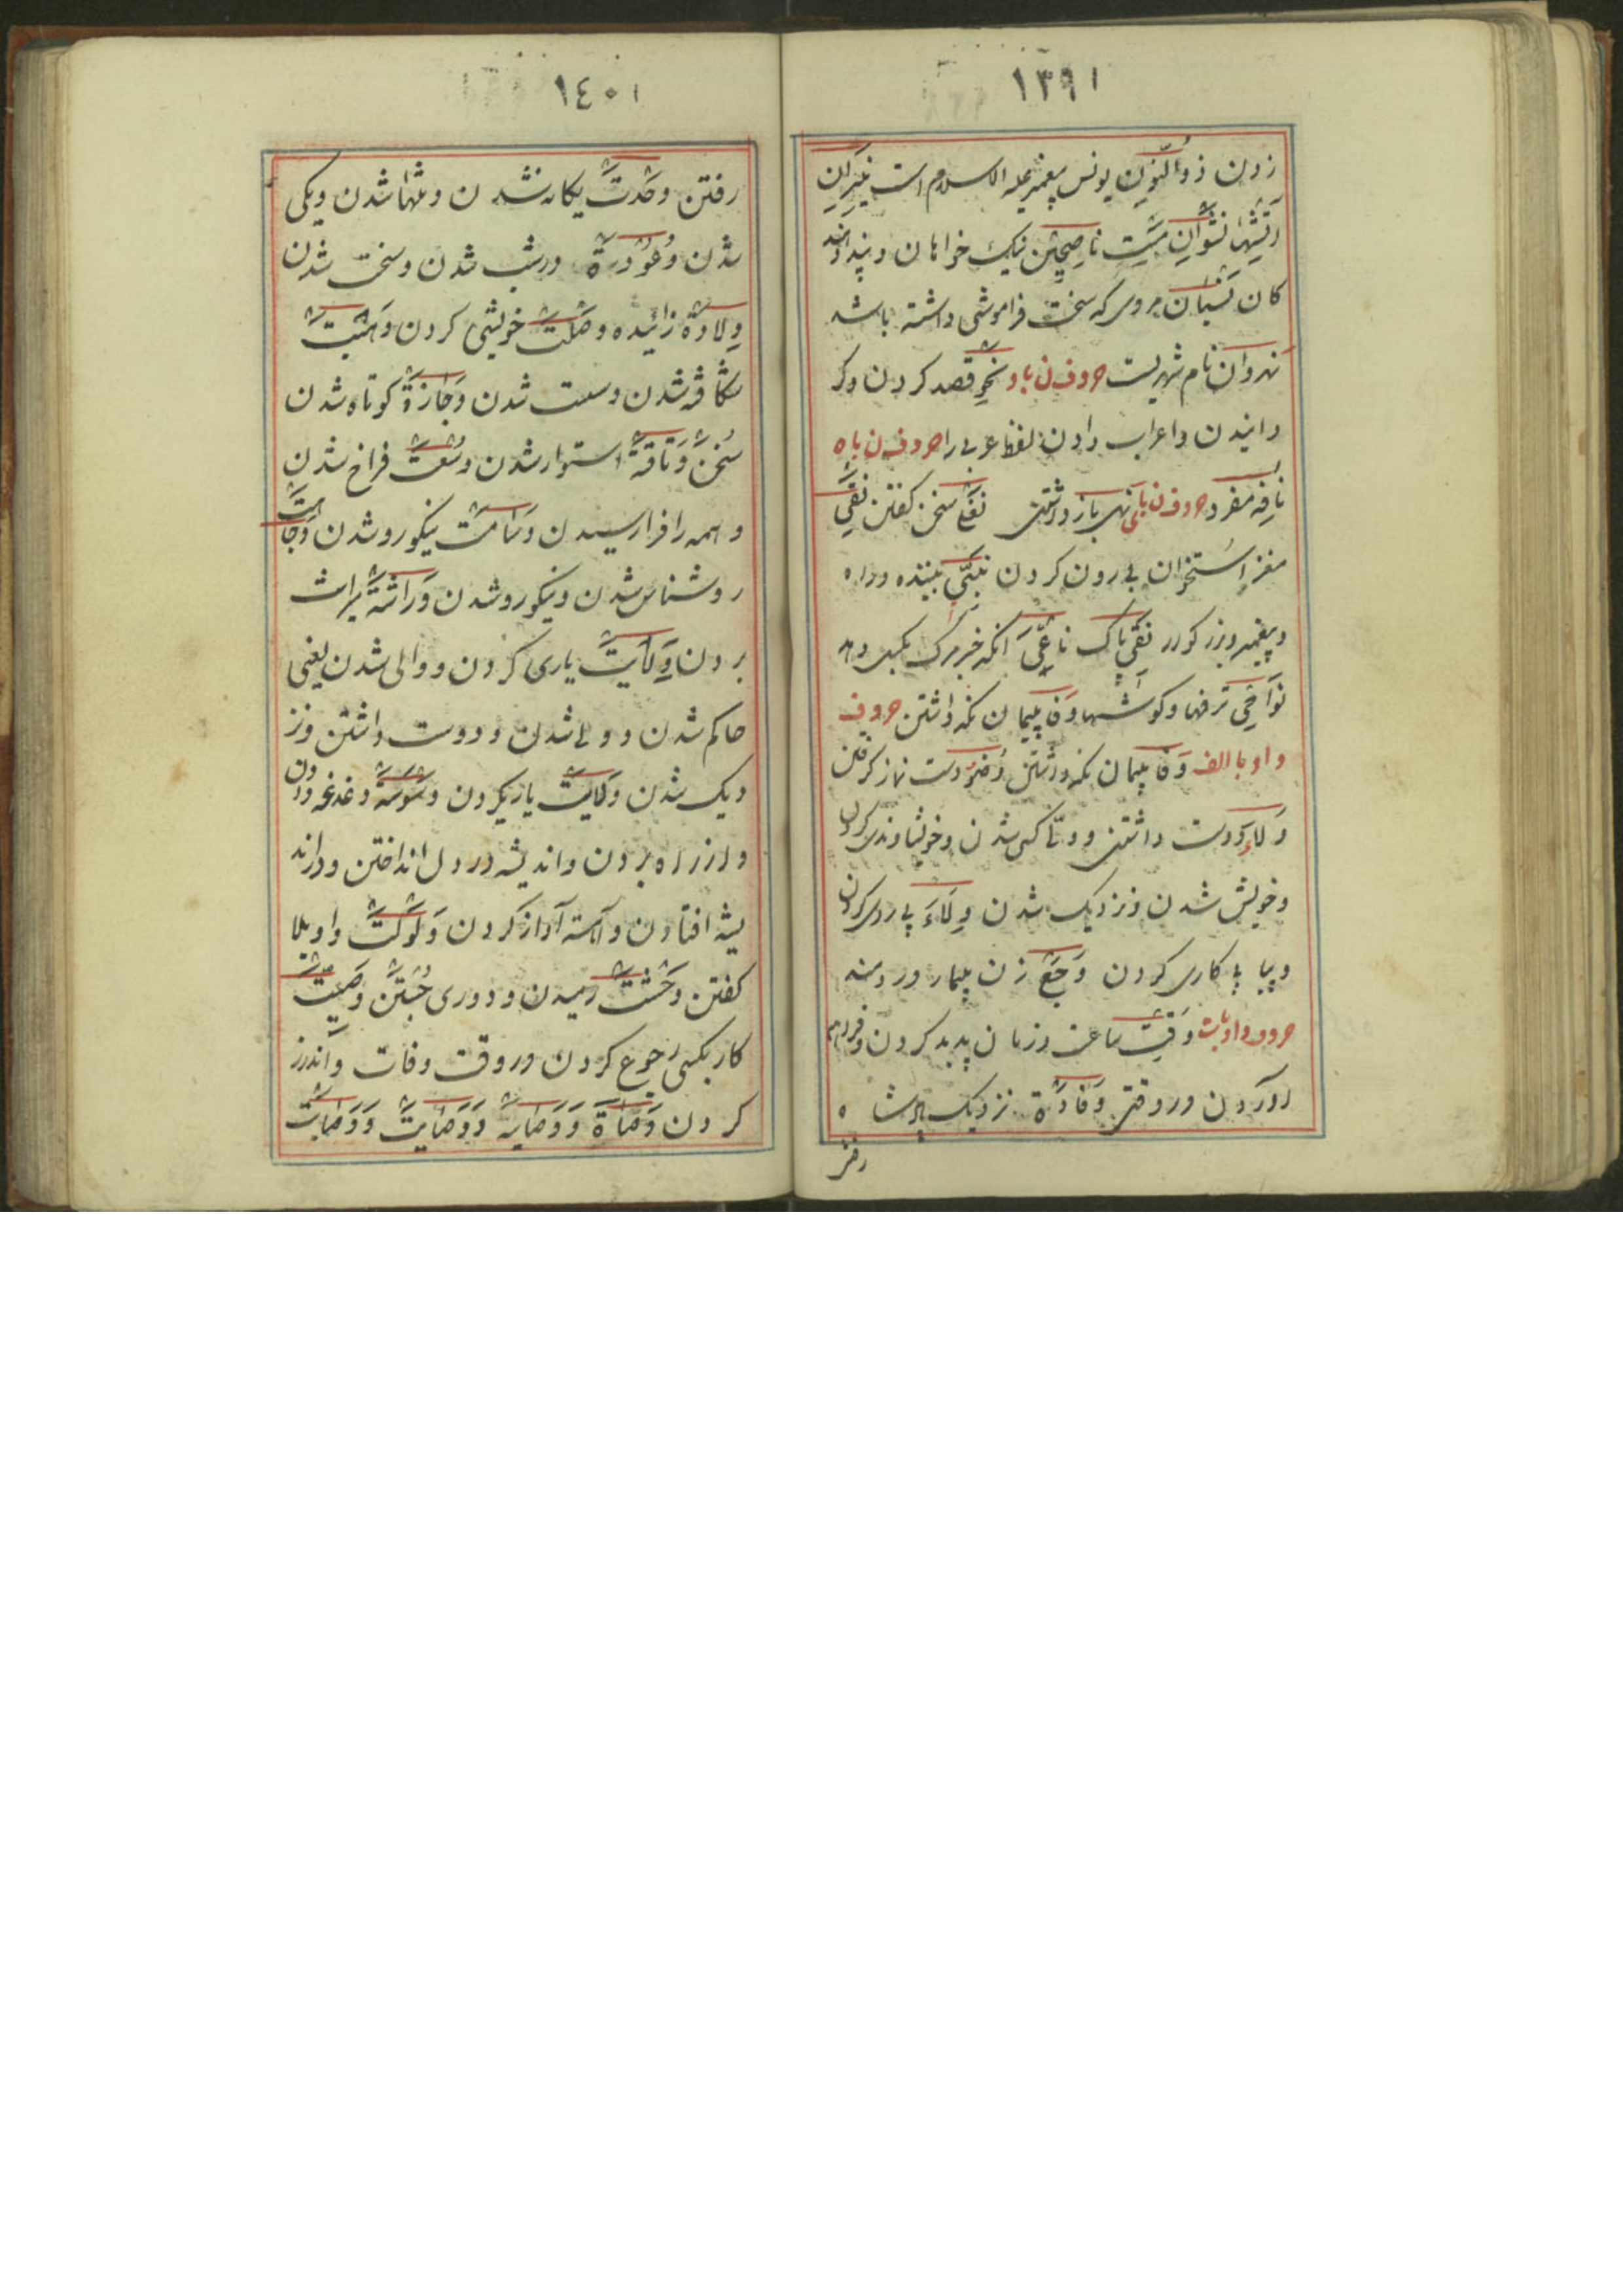 ١٣٩١
زدن ذوالنون یونس پیغمبر علیه السلام است نیران
آتشها نشوان مست ناصحین نیک خواهان و پند دهند
کان نسیان مردی که سخت فراموشی داشته باشد
نهروان نام شهریست حروف ن باو نحو قصد کردن و کر
دانیدن و اعراب دادن لفظ عربی را حروف ن باه
نافه مفرد حروف ن بای نهی باز داشتن نغی سخن گفتن نقی
مغز استخوان بیرون کردن نبی بیننده و راه
و پیغمبر و بزرکوار نقی پاک ناعی آنکه خبر مرک بکسی دهد
نواحی ترفها و کوشها وفا پیمان نکه داشتن حروف
واو با الف وفا پیمان نکه داشتن وضو دست نماز کرفتن
ولاء دوست داشتن و خویشاوندی کردن
و خویش شدن و نزدیک شدن ولاء پی روی کردن
و پیاپی کاری کردن وجع زن بیمار و دردمند
حروف واو بات وقت ساعت و زمان پدید کردن و فراهم
آوردن در وقتی وفادة نزدیک پادشاه
رفتن
١٤٠١
رفتن وحدت یکانه شدن و تنها شدن و یکی
شدن در شب شدن و سخت شدن
ولادة زائیده وصلت خویشی کردن
شکافته شدن و سست شدن وجازة کوتاه شدن
سخن وثاقة استوار شدن وسعت فراخ شدن
و همه را فرا رسیدن وسامت نیکو رو شدن وجاهت
روشناس شدن و نیکو رو شدن وراثة میراث
بردن ولایت یاری کردن و والی شدن یعنی
حاکم شدن و ولی شدن و دوست داشتن و نز
دیک شدن ولایت یاری کردن وسوسة دغدغه دادن
و از راه بردن و اندیشه در دل انداختن و در اند
یشه افتادن و آهسته آواز کردن ولولت واویلا
کفتن وحشت رمیدن و دوری جستن وصیت
کار بکسی رجوع کردن در وقت وفات و اندرز
کردن وصاة و وصایة و وصایت و وصایت